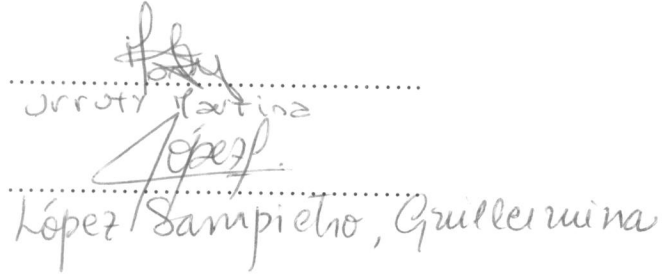 Urruty Martina
López
López Sampietro, Guillermina